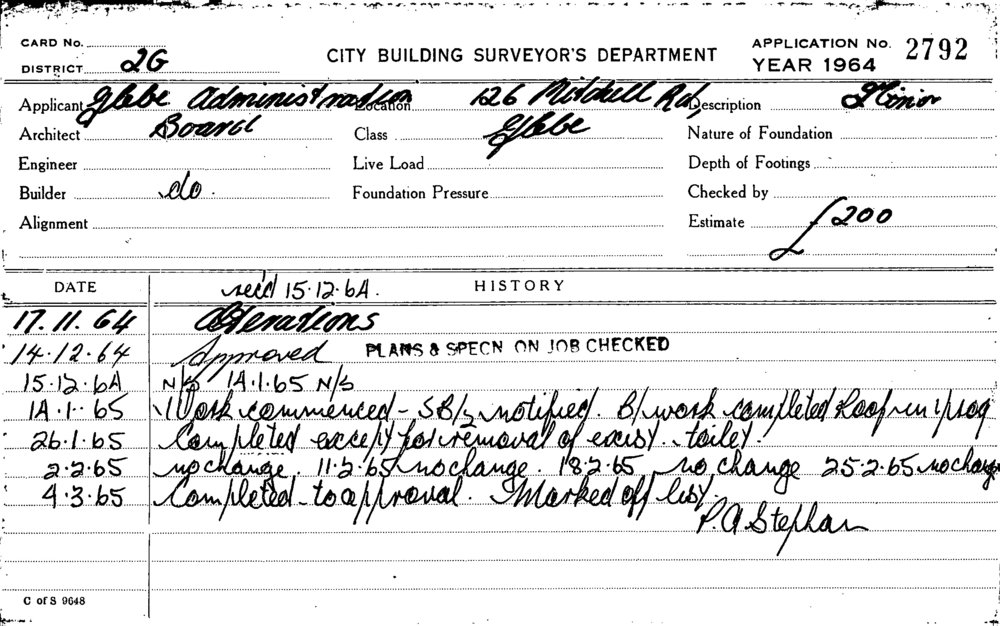 CARD No.
DISTRICT 2G
CITY BUILDING SURVEYOR'S DEPARTMENT
APPLICATION No. 2792
YEAR 1964
Applicant Glebe Administration Location 126 Mitchell Rd, Description Minor
Architect Board Class Glebe Nature of Foundation
Engineer Live Load Depth of Footings
Builder do. Foundation Pressure Checked by
Alignment Estimate £200
DATE rec'd 15.12.64. HISTORY
17.11.64 Alterations
14.12.64 Approved PLANS & SPECN ON JOB CHECKED
15.12.64 N/S 14.1.65 N/S
14.1.65 Work commenced - SB/s notified. B/work completed Roof in prog
26.1.65 Completed except for removal of exist. toilet.
2.2.65 no change. 11.2.65 no change. 18.2.65 no change 25.2.65 no change
4.3.65 Completed to approval. Marked off list.
P.A Stephan
C of S 9648